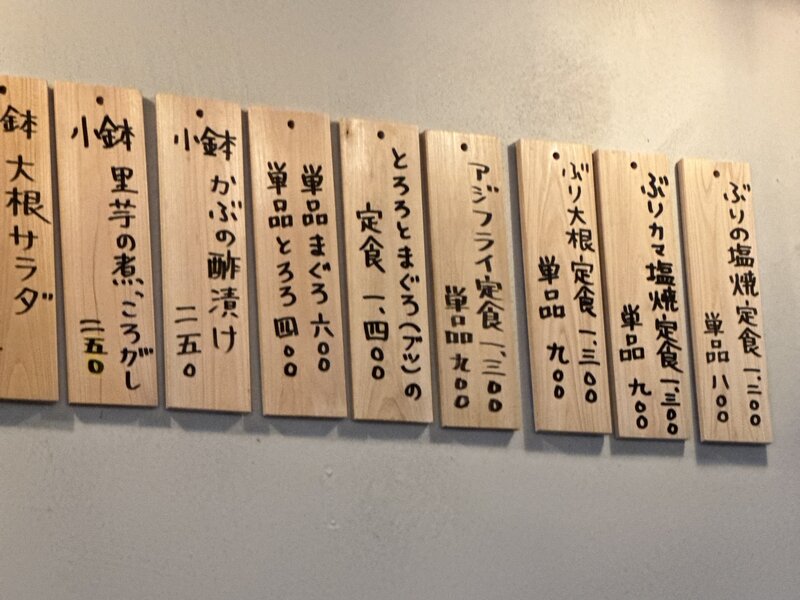 ぶりの塩焼定食 一、二〇〇
単品 八〇〇
ぶりカマ塩焼定食 一、三〇〇
単品 九〇〇
ぶり大根定食 一、三〇〇
単品 九〇〇
アジフライ定食 一、三〇〇
単品 九〇〇
とろろとまぐろ(ブツ)の
定食 一、四〇〇
単品まぐろ 六〇〇
単品とろろ 四〇〇
小鉢 かぶの酢漬け
二五〇
小鉢 里芋の煮ころがし
二五〇
鉢 大根サラダ